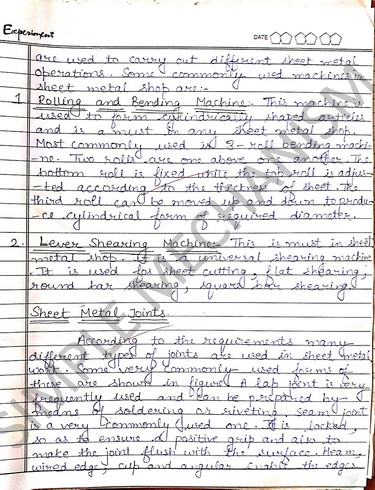 Experiment
DATE
are used to carry out different sheet metal
operations. Some commonly used machines in
sheet metal shop are:-
1 Rolling and Bending Machine:- This machine is
used to form cylindrically shaped articles
and is a must in any sheet metal shop.
Most commonly used is 3-roll bending machi-
-ne. Two rolls are one above one another. The
bottom roll is fixed while the top roll is adjus-
-ted according to the thickness of sheet. The
third roll can be moved up and down to produ-
-ce cylindrical form of required diameter.
2. Lever Shearing Machine: This is must in sheet
metal shop. It is a universal shearing machine.
It is used for sheet cutting, flat shearing,
round bar shearing, square bar shearing
Sheet Metal Joints.
According to the requirements many
different types of joints are used in sheet metal
work. Some very commonly used forms of
these are shown in figure. A lap joint is very
frequently used and can be prepared by
means of soldering or riveting. seam joint
is a very commonly used one. It is locked,
so as to ensure a positive grip and also to
make the joint flush with the surface. Hem,
wired edge, cup and angular the edges
SIMPLE MECHANISM